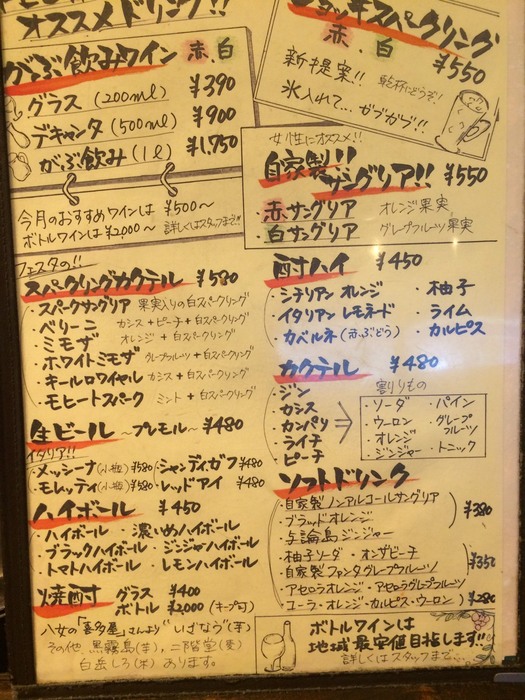 オススメドリンク!!
がぶ飲みワイン 赤、白
グラス (200ml) ¥390
デキャンタ (500ml) ¥900
がぶ飲み (1ℓ) ¥1,750
今月のおすすめワインは ¥500〜
ボトルワインは ¥2,000〜 詳しくはスタッフまで!!
フェスタの!!
スパークリングカクテル ¥580
・スパークサングリア 果実入りの白スパークリング
・ベリーニ カシス+ピーチ+白スパークリング
・ミモザ オレンジ+白スパークリング
・ホワイトミモザ グレープフルーツ+白スパークリング
・キールロワイヤル カシス+白スパークリング
・モヒートスパーク ミント+白スパークリング
生ビール 〜プレモル〜 ¥480
イタリア!!
・メッシーナ(小瓶)¥580 ・シャンディガフ ¥480
・モレッティ(小瓶)¥580 ・レッドアイ ¥480
ハイボール ¥450
・ハイボール ・濃いめハイボール
・ブラックハイボール ・ジンジャーハイボール
・トマトハイボール ・レモンハイボール
焼酎 グラス ¥400
ボトル ¥2,000 (キープ可)
八女の「喜多屋」さんより"いざなう"(芋)
その他 黒霧島(芋)、二階堂(麦)
白岳しろ(米) あります。
ジョッキスパークリング
赤 白 ¥550
新提案!! 乾杯にどうぞ!
氷入れて… ガブガブ!!
女性にオススメ!!
自家製!!
サングリア!! ¥550
・赤サングリア オレンジ果実
・白サングリア グレープフルーツ果実
酎ハイ ¥450
・シチリアン オレンジ ・柚子
・イタリアン レモネード ・ライム
・カベルネ (赤ぶどう) ・カルピス
カクテル ¥480
・ジン
・カシス
・カンパリ
・ライチ
・ピーチ
割りもの
・ソーダ ・パイン
・ウーロン ・グレープフルーツ
・オレンジ
・ジンジャー ・トニック
ソフトドリンク
・自家製ノンアルコールサングリア
・ブラッドオレンジ ¥380
・与論島ジンジャー
・柚子ソーダ ・オンザビーチ
・自家製ファンタグレープフルーツ ¥350
・アセロラオレンジ ・アセロラグレープフルーツ
・コーラ・オレンジ・カルピス・ウーロン ¥280
ボトルワインは
地域最安値目指します!!
詳しくはスタッフまで…